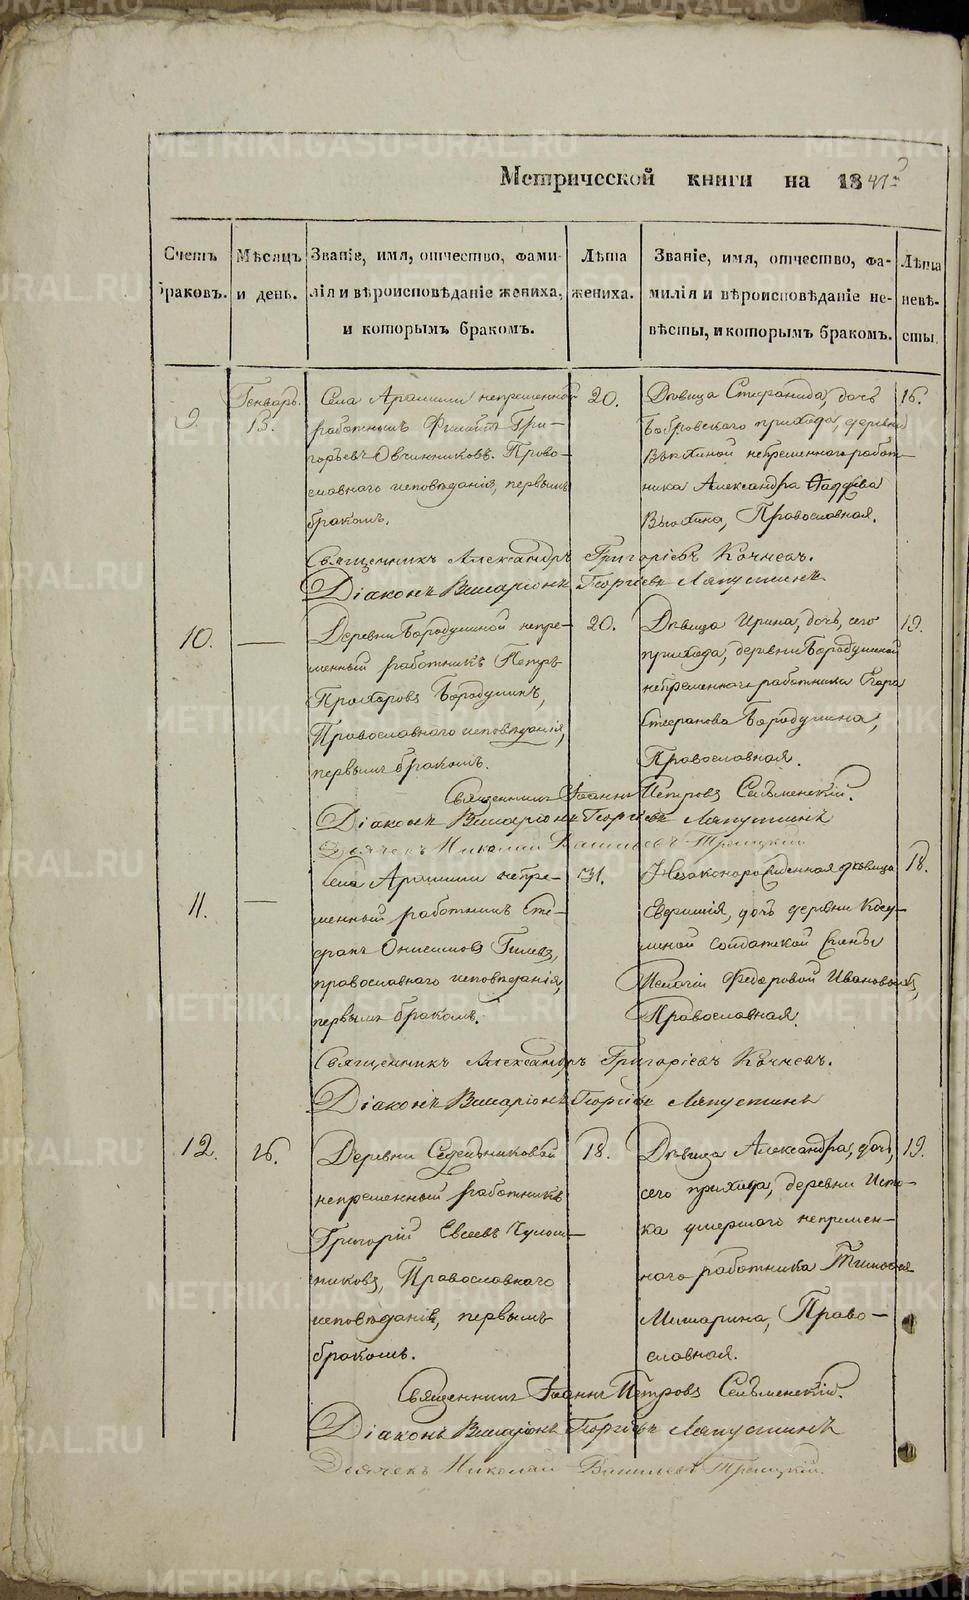 METRIKI.GASO-URAL.RU
Метрической книги на 1841й
Счетъ браковъ.
Мѣсяцъ и день.
Званіе, имя, отчество, фами-
лія и вѣроисповѣданіе жениха,
и которымъ бракомъ.
Лѣта
жениха.
Званіе, имя, отчество, фа-
милія и вѣроисповѣданіе не-
вѣсты, и которымъ бракомъ.
Лѣта
невѣ-
сты.
9.
Генварь.
13.
Села Арамили непременный
работникъ Филиппъ Гри-
горьевъ Овчинниковъ. Право-
славнаго исповѣданія, первымъ
бракомъ.
20.
Дѣвица Стефанида, дочь
Бобровскаго прихода, деревни
непременнаго работ-
ника Александра
Православная.
16.
Священникъ Александръ Григоріевъ Кочневъ.
Діаконъ Виссаріонъ Георгіевъ Ляпустинъ
10.
—
Деревни Бородулиной непре-
менный работникъ Петръ
Прохоровъ Бородулинъ,
Православнаго исповѣданія,
первымъ бракомъ.
20.
Дѣвица Ирина, дочь, сего
прихода, деревни Бородулиной
непременнаго работника Егора
Стефанова Бородулина,
Православная.
19.
Священникъ Іоаннъ Петровъ Сельменскій.
Діаконъ Виссаріонъ Георгіевъ Ляпустинъ
Дьячекъ Николай Васильевъ Троицкій
11.
—
Села Арамили непре-
менный работникъ Сте-
фанъ Онисимовъ Гилевъ,
православнаго исповѣданія,
первымъ бракомъ.
31.
Незаконорожденная дѣвица
Евфимія, дочь деревни Косу-
линой солдатской жены
Пелагіи Федоровой Ивановой,
Православная.
18.
Священникъ Александръ Григоріевъ Кочневъ.
Діаконъ Виссаріонъ Георгіевъ Ляпустинъ
12.
26.
Деревни Седельниковой
непременный работникъ
Григорій Евсеевъ
Православнаго
исповѣданія, первымъ
бракомъ.
18.
Дѣвица Александра, дочь,
сего прихода, деревни Исто-
ка умершаго непремен-
наго работника Тимофея
Мишарина, Право-
славная.
19.
Священникъ Іоаннъ Петровъ Сельменскій.
Діаконъ Виссаріонъ Георгіевъ Ляпустинъ
Дьячекъ Николай Васильевъ Троицкій.